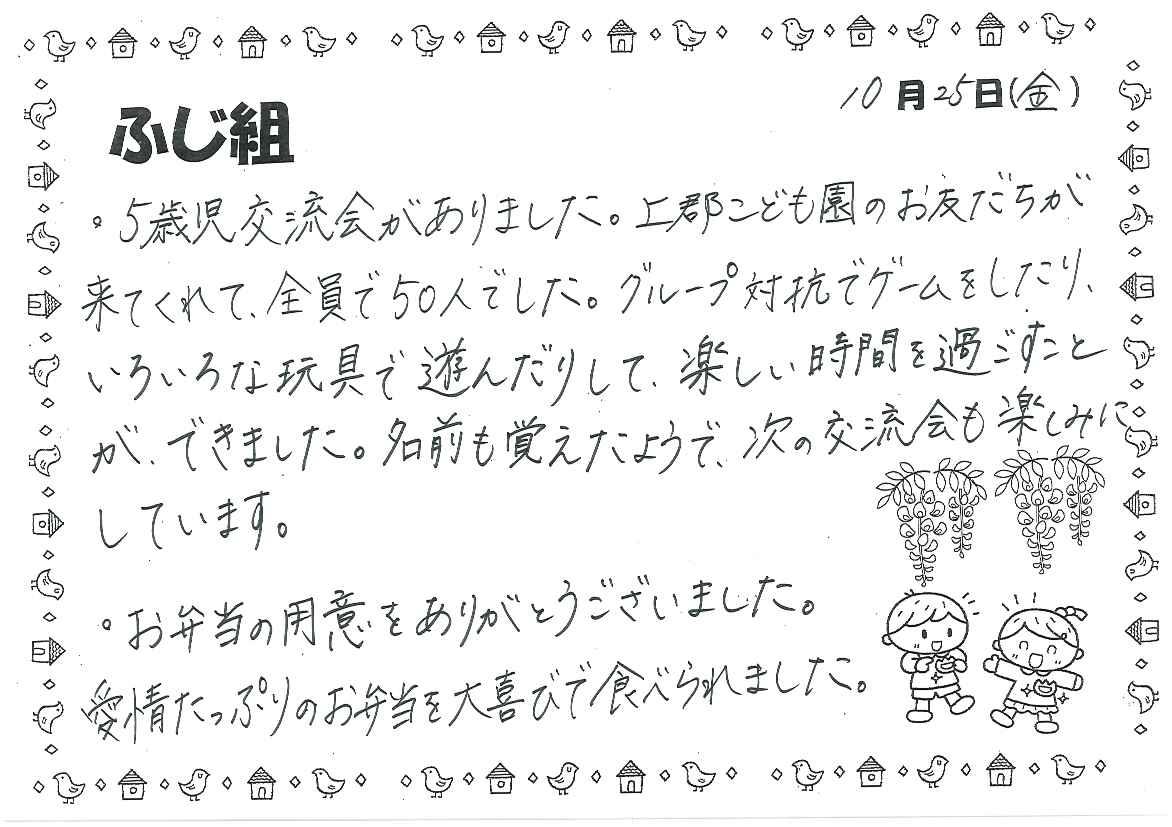 10月25日(金)
ふじ組
。5歳児交流会がありました。上郡こども園のお友だちが
来てくれて、全員で50人でした。グループ対抗でゲームをしたり、
いろいろな玩具で遊んだりして、楽しい時間を過ごすこと
が、できました。名前も覚えたようで、次の交流会も楽しみに
しています。
。お弁当の用意をありがとうございました。
愛情たっぷりのお弁当を大喜びで食べられました。